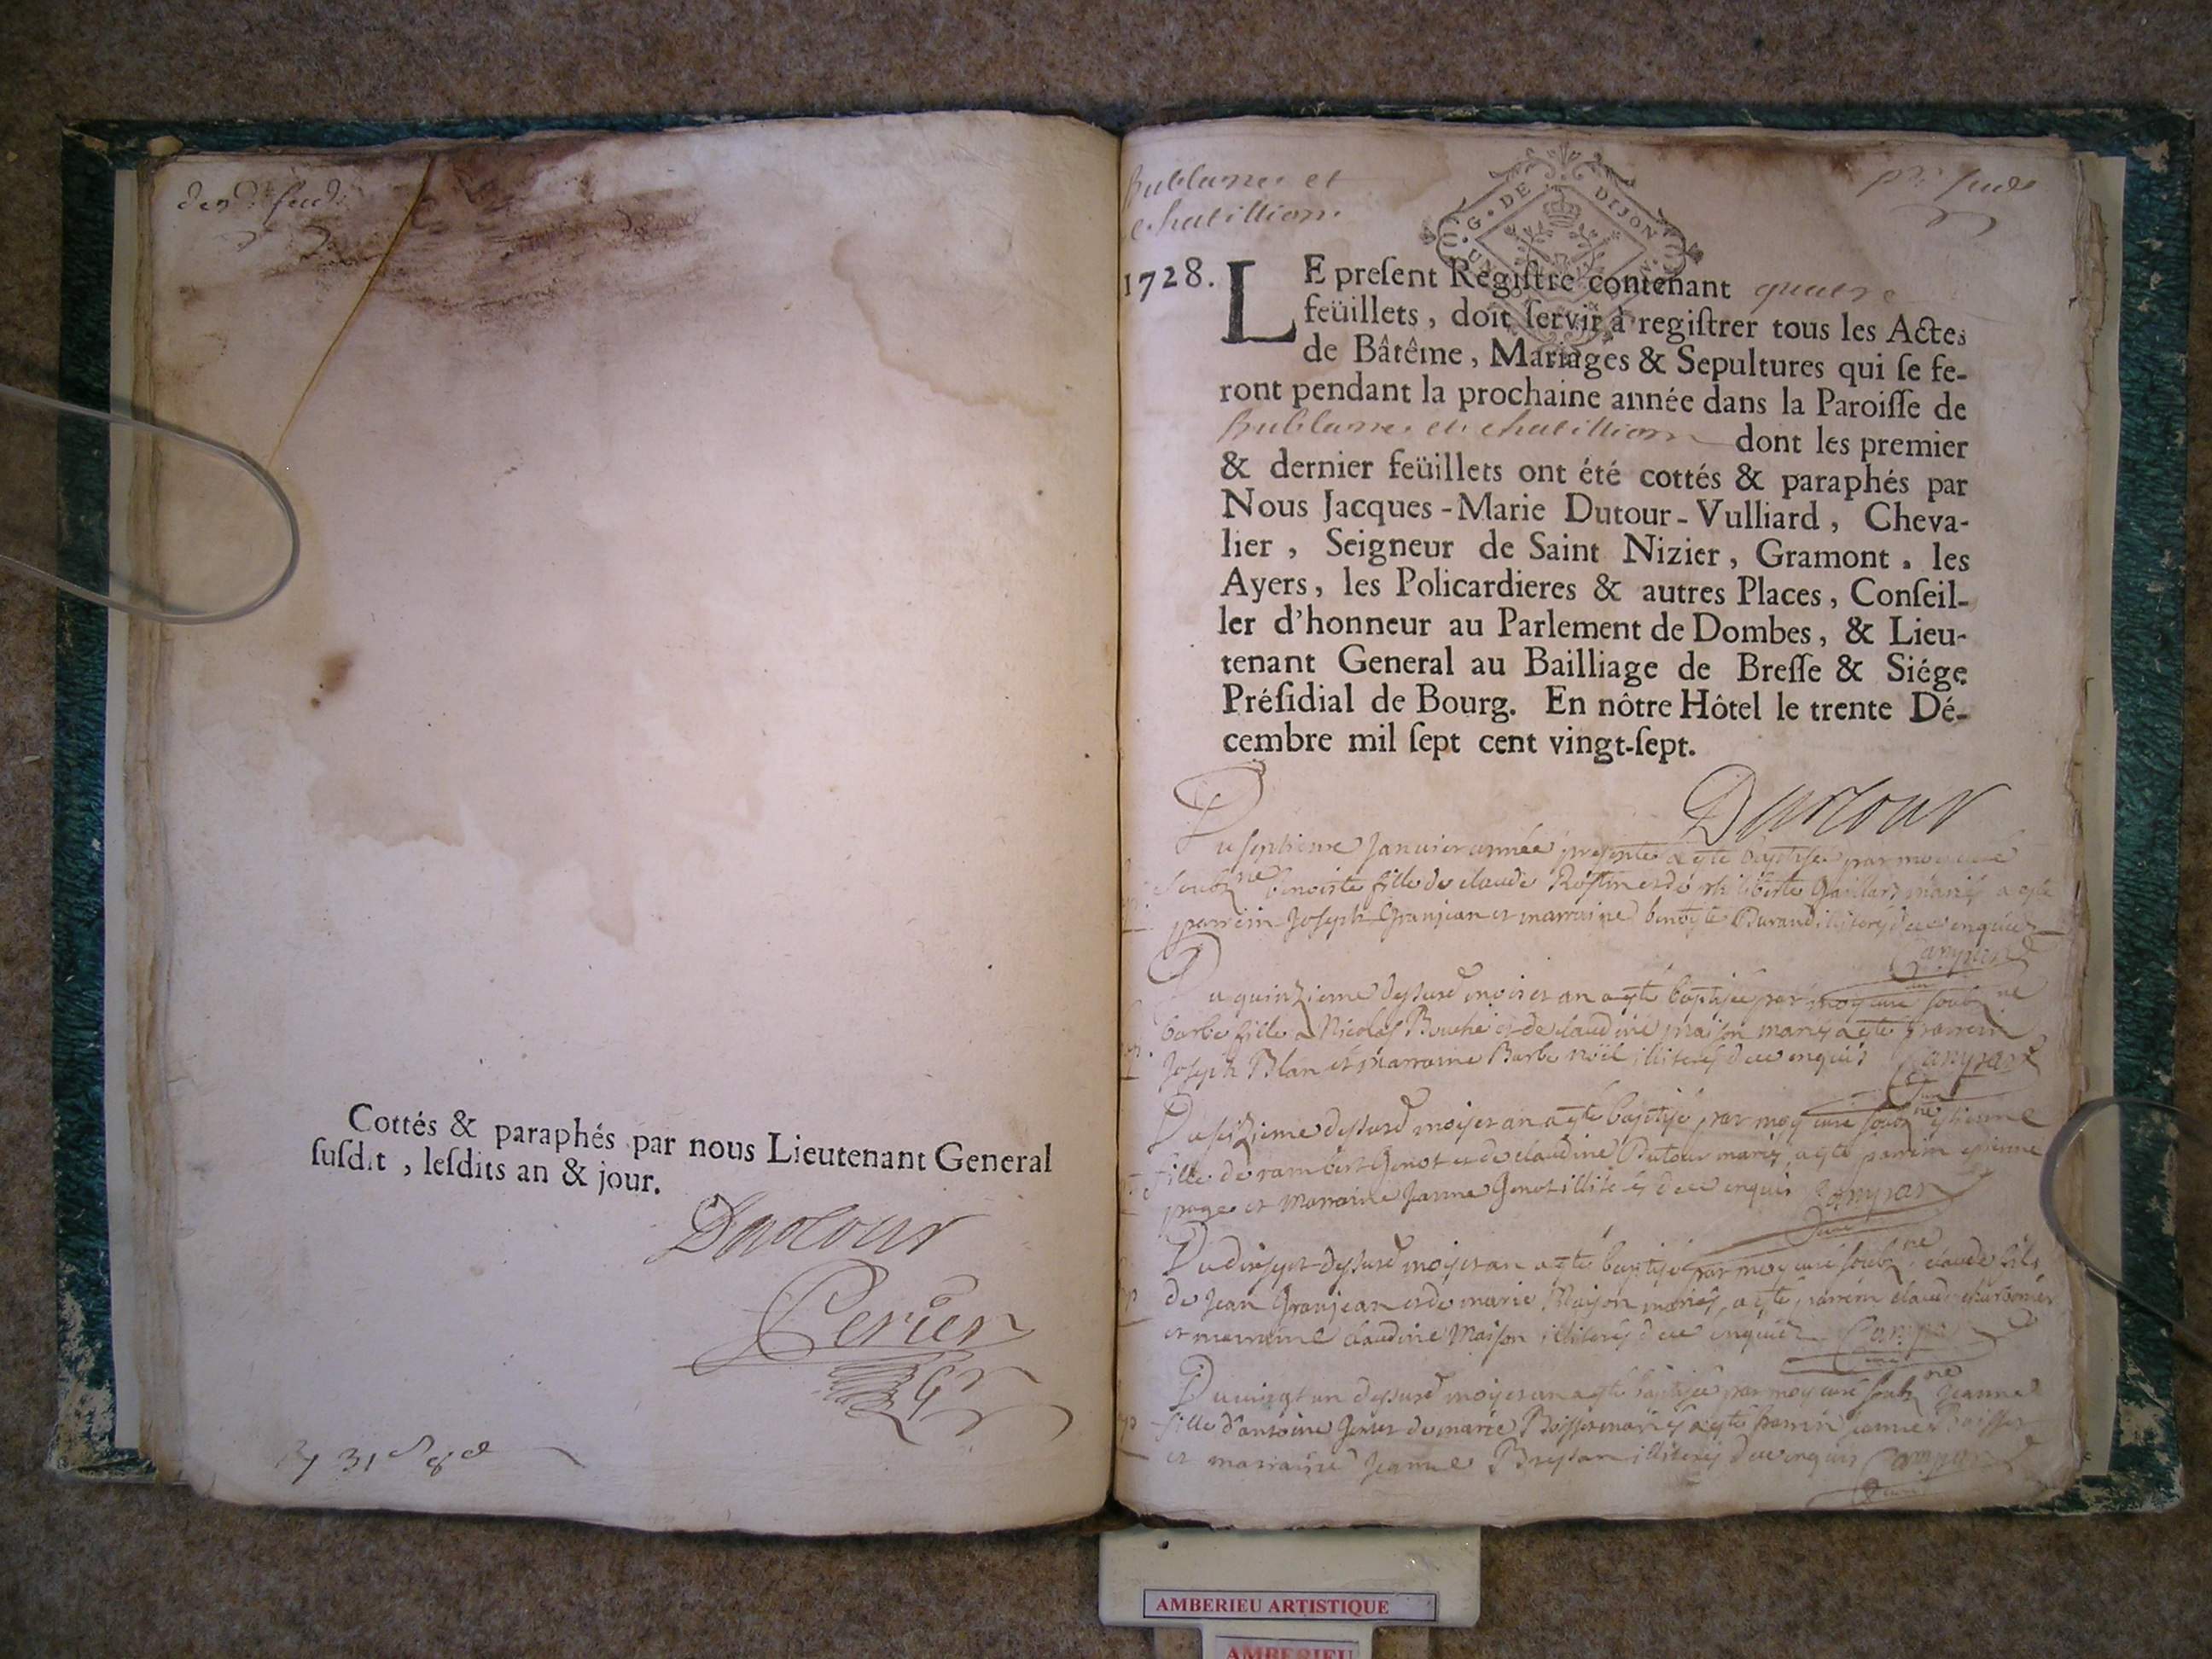 Cottés & paraphés par nous Lieutenant General
susd.t , lesdits an & jour.
Perier
Bublanne et
chatillion
1728.
G. DE DIJON
LE present Registre contenant quatre
feüillets , doit servir à registrer tous les Actes
de Bâtême , Mariages & Sepultures qui se fe-
ront pendant la prochaine année dans la Paroisse de
Bublanne et chatillion dont les premier
& dernier feüillets ont été cottés & paraphés par
Nous Jacques-Marie Dutour-Vulliard , Cheva-
lier , Seigneur de Saint Nizier , Gramont , les
Ayers , les Policardieres & autres Places , Conseil-
ler d'honneur au Parlement de Dombes , & Lieu-
tenant General au Bailliage de Bresse & Siége
Présidial de Bourg. En nôtre Hôtel le trente Dé-
cembre mil sept cent vingt-sept.
Du septieme Janvier année presente a esté baptisée par moy curé
soubz.ne benoiste fille de claude Rostin et de philiberte Gaillard mariés a esté
parrein Joseph Granjean et marraine benoyte Durand illiterés de ce enquis
Du quinzieme dessusd mois et an a esté baptisée par moy curé soubz.ne
barbe fille a Nicolas Bouché et de claudine maison mariés a esté parrein
Joseph Blan et marraine Barbe noël illiterés de ce enquis
Du sezieme dessusd moys et an a esté baptisé par moy curé soubz.ne estienne
fille de rambert Genot et de claudine Dutour mariés a esté parrein estienne
page et Marraine Janne Genot illiterés de ce enquis
Du disept dessusd moys et an a esté baptisé par moy curé soubz.ne claude fils
de Jean Granjean et de marie Maison mariés a esté parrein claude
et marraine claudine Maison illiterés de ce enquis
Du vingt un dessusd moys et an a esté baptisée par moy curé soubz.ne Jeanne
fille d'antoine et de marie mariés a esté parrein
et marraine Jeanne illiterés de ce enquis
AMBERIEU ARTISTIQUE
AMBERIEU